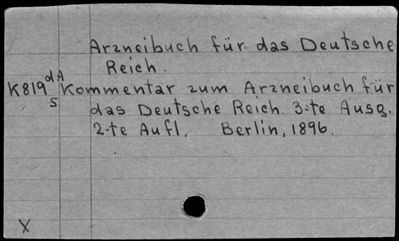 Arzneibuch für das Deutsche
Reich.
dA
K819 Kommentar zum Arzneibuch für
S das Deutsche Reich. 3-te Ausg.
2-te Aufl. Berlin, 1896.
X